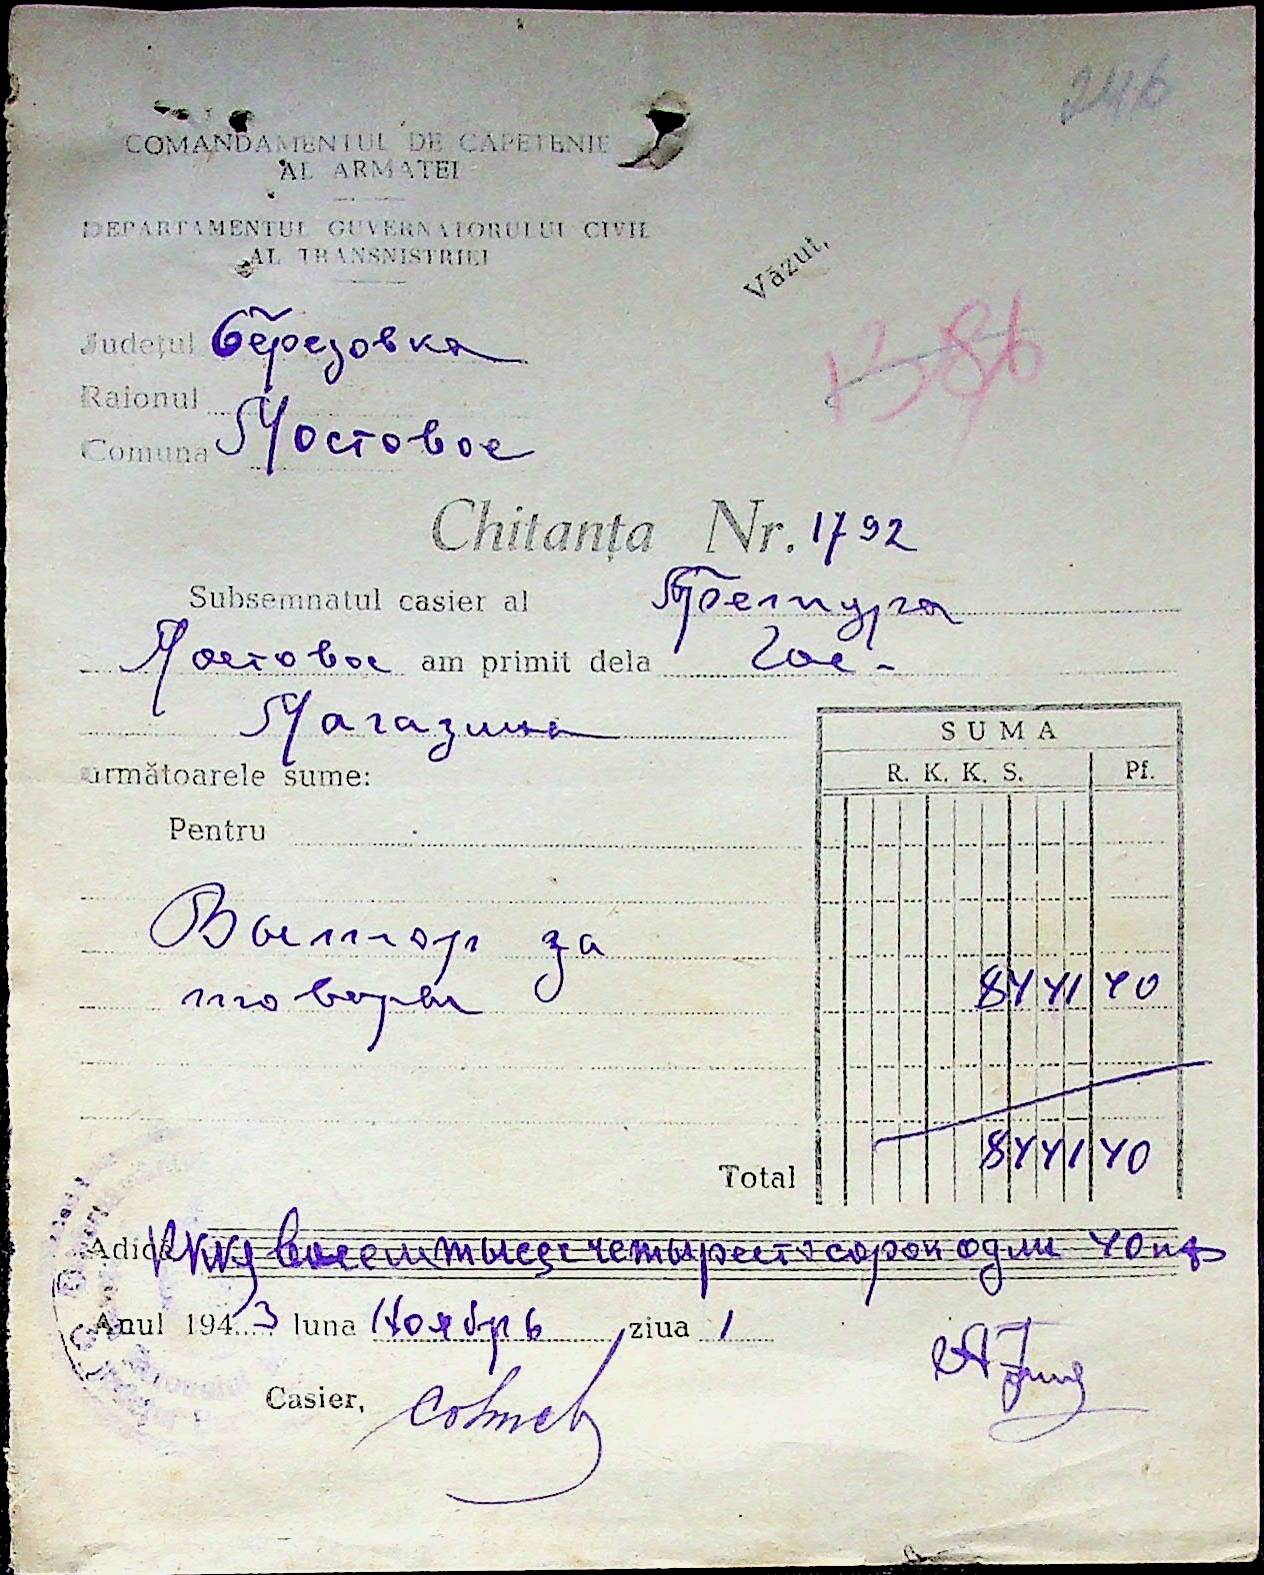 246
COMANDAMENTUL DE CAPETENIE
AL ARMATEI
DEPARTAMENTUL GUVERNATORULUI CIVIL
AL TRANSNISTRIEI
Văzut,
1386
Judeţul Березовка
Raionul
Comuna Мостовое
Chitanţa Nr. 1792
Subsemnatul casier al Претура
Мостовое am primit dela Гос-
Магазина
următoarele sume:
SUMA
R. K. K. S. Pf.
Pentru
за
товары
8441 40
Total 8441 40
Adică восем тысяс четыреста сорок один 40 пф
Anul 1943 luna Ноябрь ziua 1
Casier,